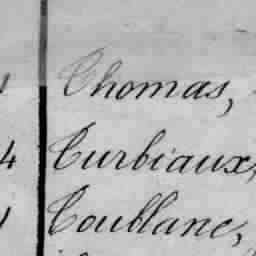 Thomas,
4 Turbiaux,
Toublanc,